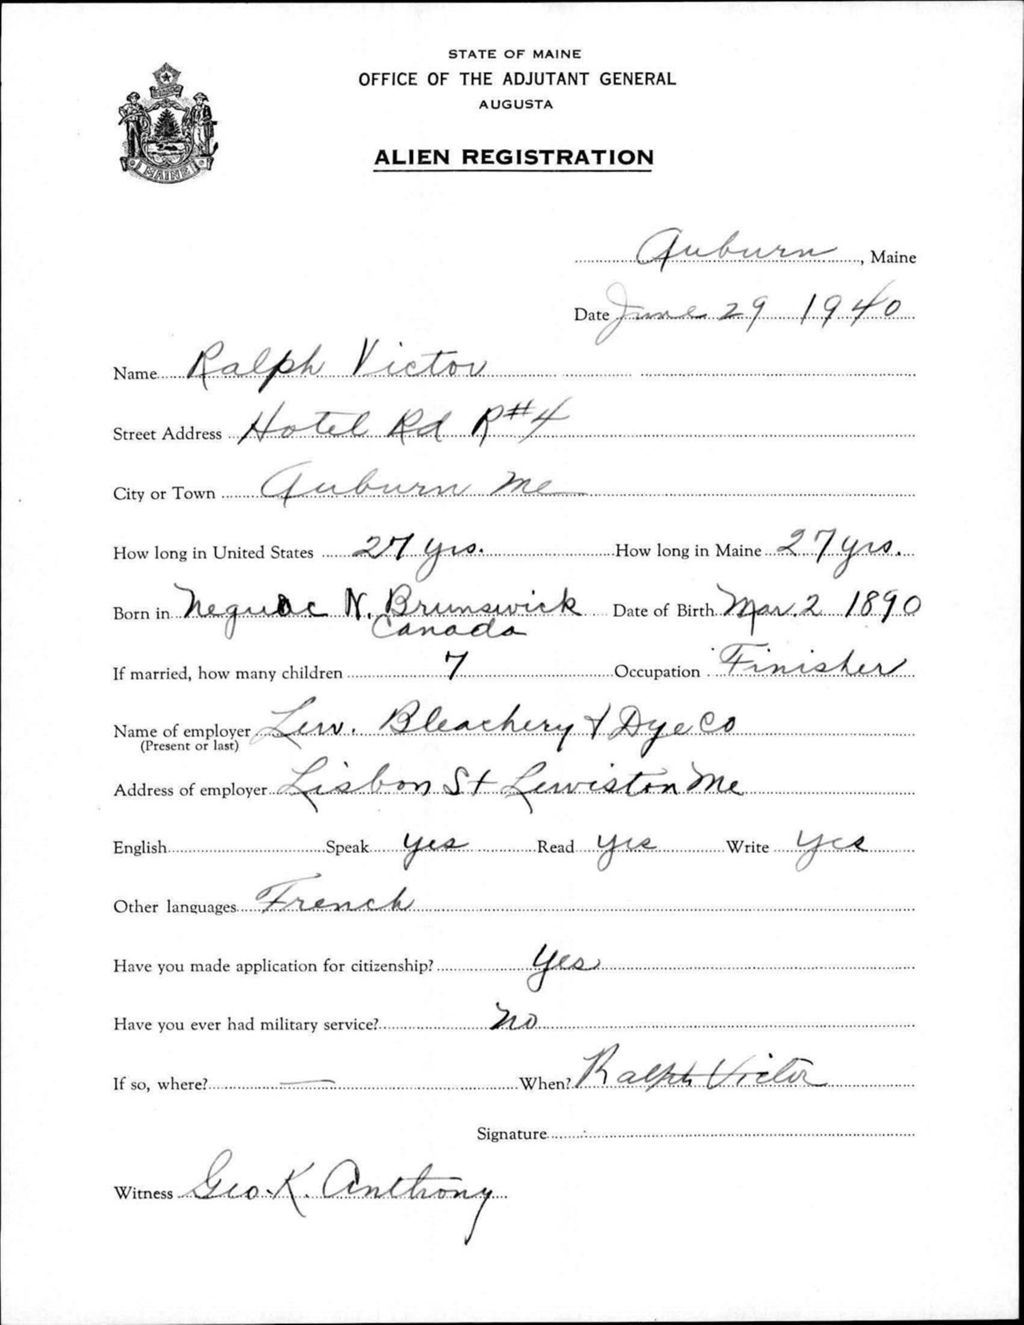 STATE OF MAINE
OFFICE OF THE ADJUTANT GENERAL
AUGUSTA
ALIEN REGISTRATION
MAINE
Auburn, Maine
Date June 29 1940
Name Ralph Victor
Street Address Hotel Rd R#4
City or Town Auburn Me
How long in United States 27 yrs. How long in Maine 27 yrs.
Born in Neguac N. Brunswick Date of Birth Mar. 2 1890
Canada
If married, how many children 7 Occupation Finisher
Name of employer Lew. Bleachery & Dye Co
(Present or last)
Address of employer Lisbon St Lewiston Me
English Speak yes Read yes Write yes
Other languages French
Have you made application for citizenship? Yes
Have you ever had military service? No
If so, where? — When? Ralph Victor
Signature
Witness Geo. K. Anthony